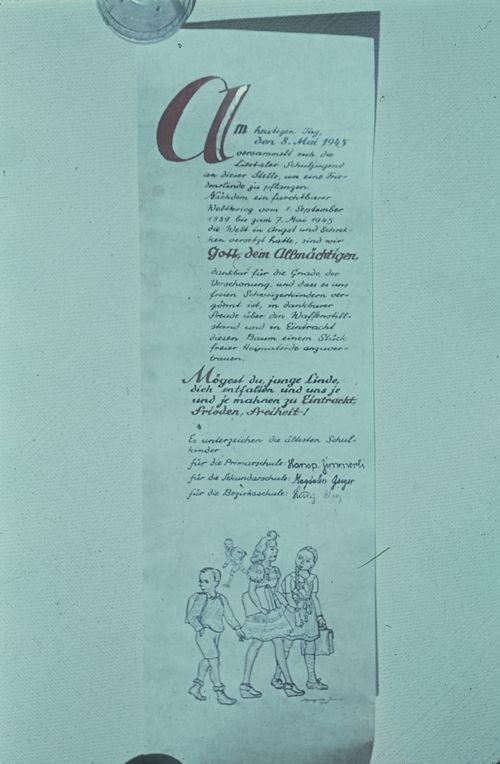 Am heutigen Tag,
den 8. Mai 1945
versammelt sich die
Liestaler Schuljugend
an dieser Stelle, um eine Frie-
denslinde zu pflanzen.
Nachdem ein furchtbarer
Weltkrieg vom 1. September
1939 bis zum 7. Mai 1945
die Welt in Angst und Schrek-
ken versetzt hatte, sind wir
Gott, dem Allmächtigen,
dankbar für die Gnade der
Verschonung, und dass es uns
freien Schweizerkindern ver-
gönnt ist, in dankbarer
Freude über den Waffenstill-
stand und in Eintracht
diesen Baum einem Stück
freier Heimaterde anzuver-
trauen.
Mögest du, junge Linde,
dich entfalten und uns je
und je mahnen zu Eintracht,
Frieden, Freiheit!
Es unterzeichen die ältesten Schul-
kinder
für die Primarschule: Hansp. Zimmerli
für die Sekundarschule: Magdalen Geiger
für die Bezirksschule: